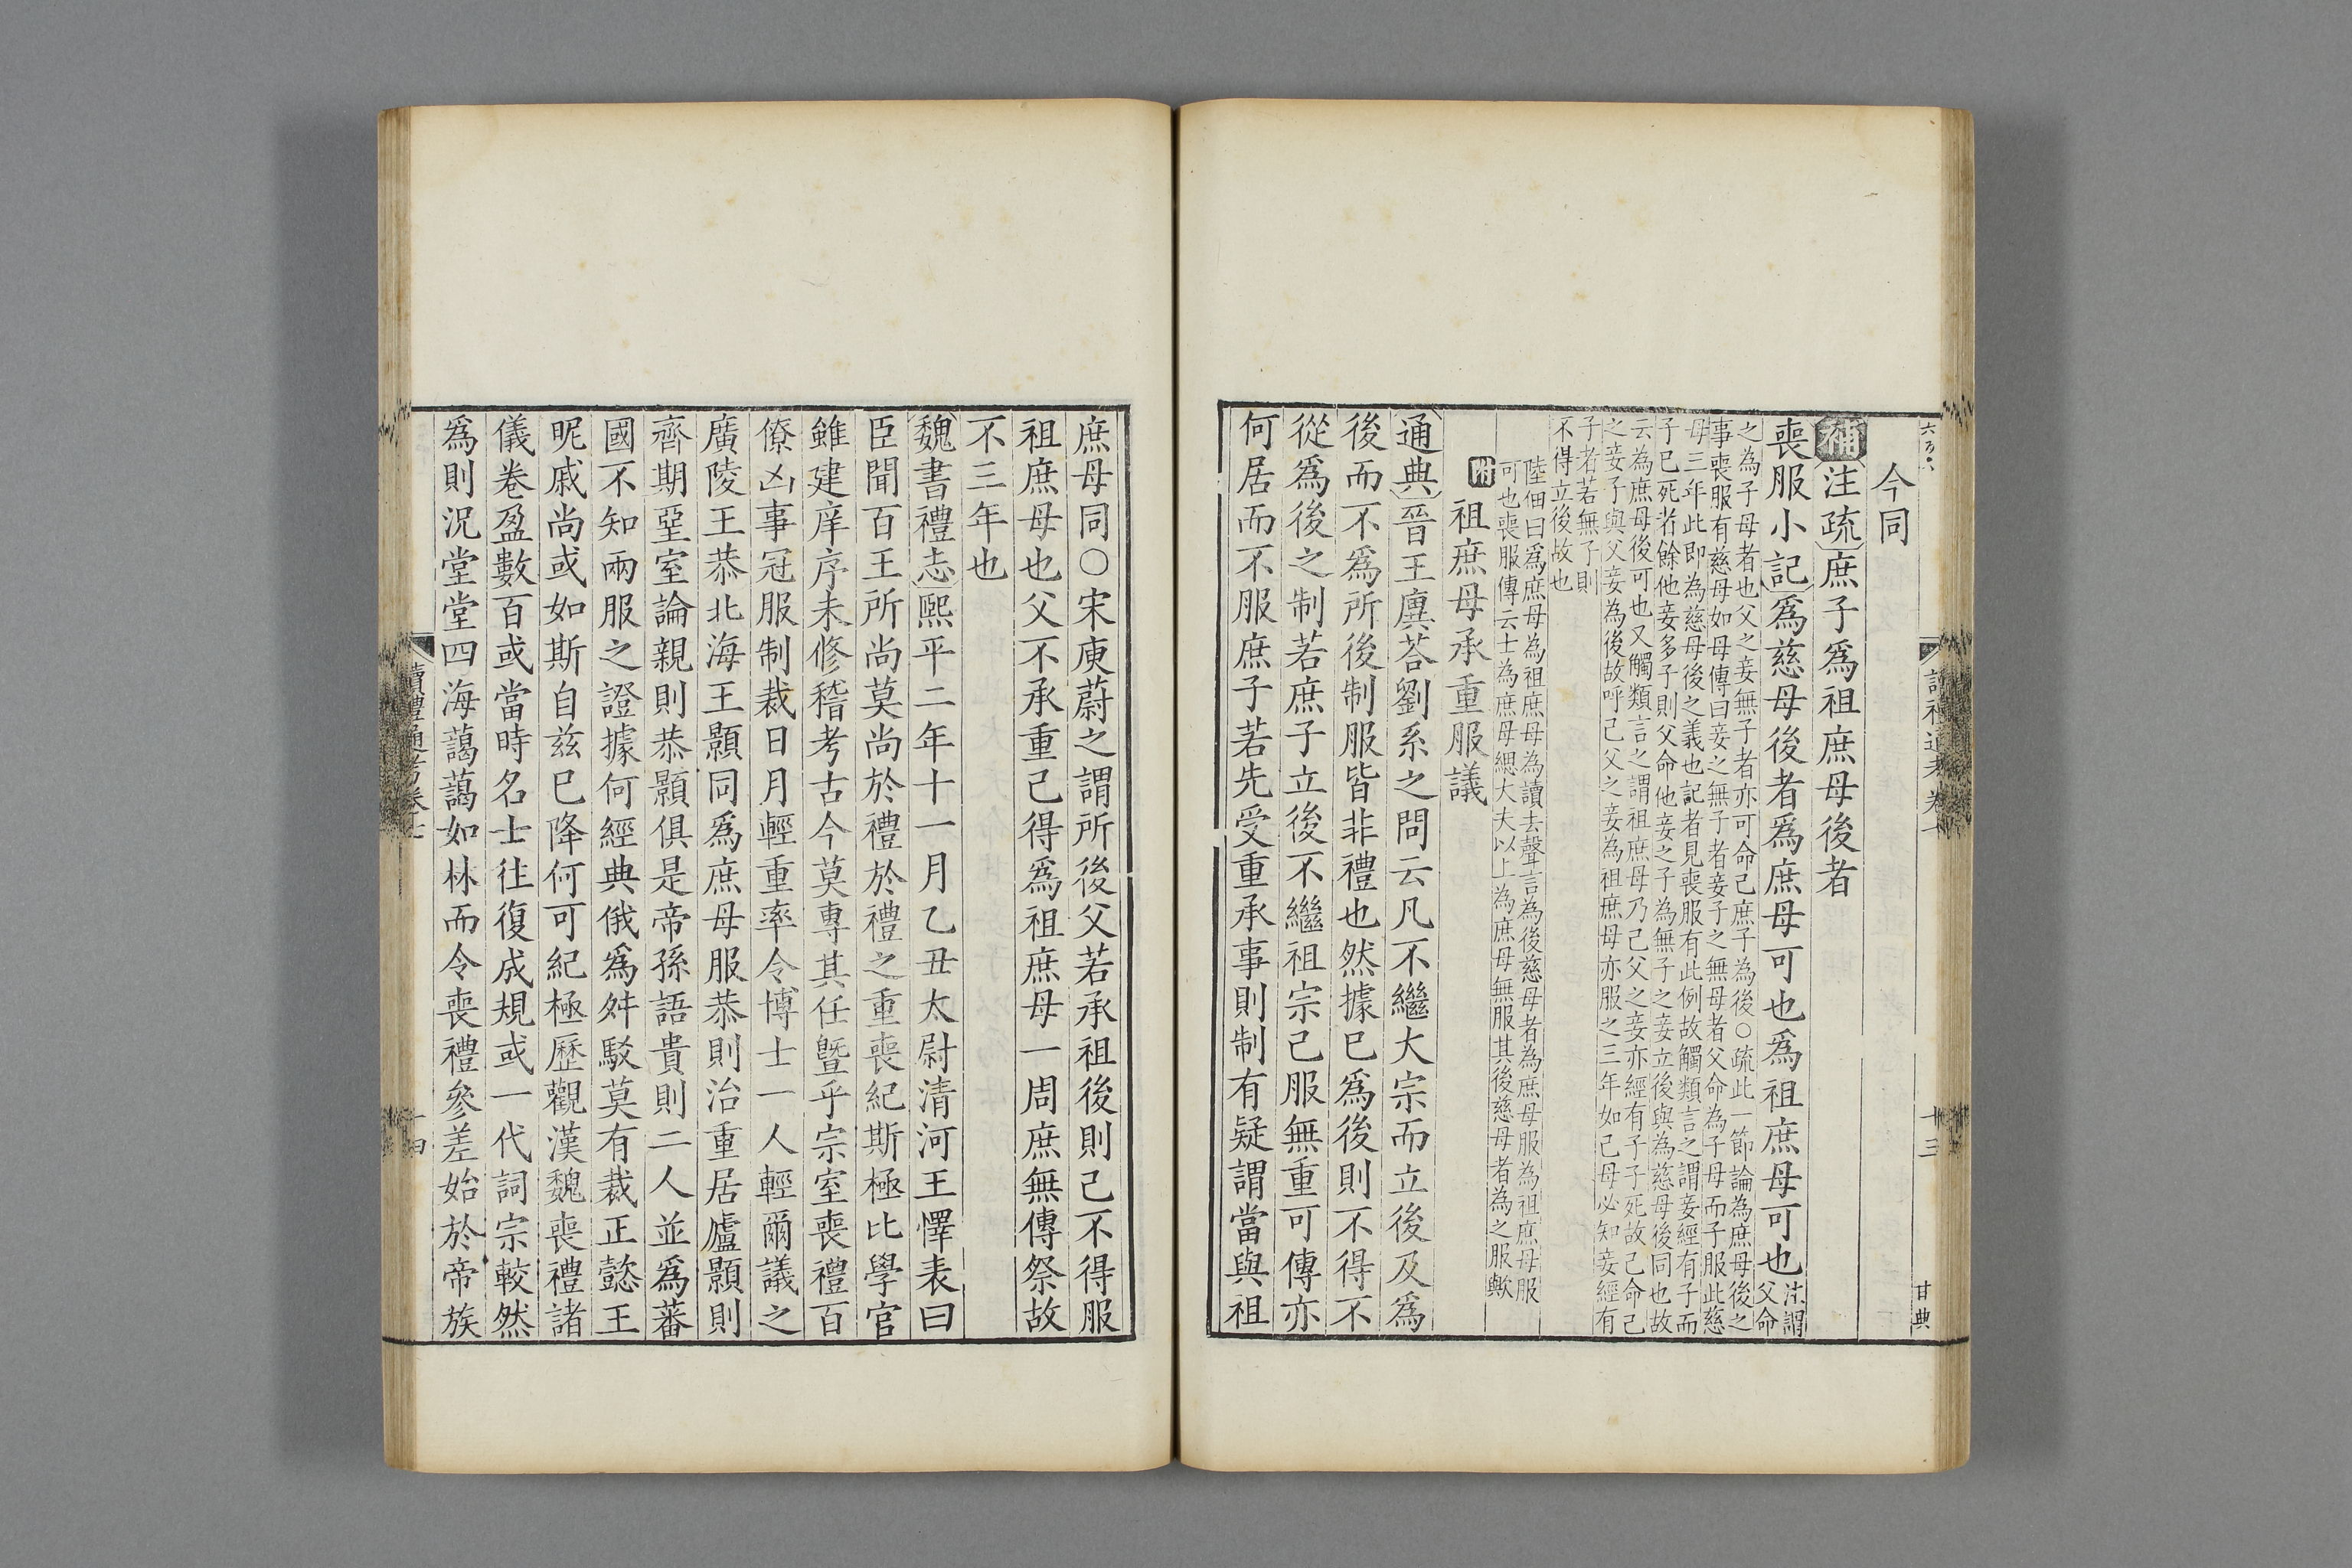 今同
補注疏庶子爲祖庶母後者
喪服小記爲慈母後者爲庶母可也爲祖庶母可也注謂父命
之為子母者也父之妾無子者亦可命己庶子為後○疏此一節論為庶母後之
事喪服有慈母如母傳曰妾之無子者妾子之無母者父命為子母而子服此慈
母三年此即為慈母後之義也記者見喪服有此例故觸類言之謂妾經有子而
子已死者餘他妾多子則父命他妾之子為無子之妾立後與為慈母後同也故
云為庶母後可也又觸類言之謂祖庶母乃己父之妾亦經有子子死故己命己
之妾子與父妾為後故呼己父之妾為祖庶母亦服之三年如己母必知妾經有
子者若無子則
不得立後故也
陸佃曰為庶母為祖庶母為讀去聲言為後慈母者為庶母服為祖庶母服
可也喪服傳云士為庶母緦大夫以上為庶母無服其後慈母者為之服歟
附祖庶母承重服議
通典晉王廙荅劉系之問云凡不繼大宗而立後及爲
後而不爲所後制服皆非禮也然據已爲後則不得不
從爲後之制若庶子立後不繼祖宗己服無重可傳亦
何居而不服庶子若先受重承事則制有疑謂當與祖
讀禮通考卷十
十三
甘典
庶母同○宋庾蔚之謂所後父若承祖後則己不得服
祖庶母也父不承重己得爲祖庶母一周庶無傳祭故
不三年也
魏書禮志熙平二年十一月乙丑太尉清河王懌表曰
臣聞百王所尚莫尚於禮於禮之重喪紀斯極比學官
雖建庠序未修稽考古今莫專其任曁乎宗室喪禮百
僚凶事冠服制裁日月輕重率令博士一人輕爾議之
廣陵王恭北海王顥同爲庶母服恭則治重居廬顥則
齊期堊室論親則恭顥俱是帝孫語貴則二人並爲蕃
國不知兩服之證據何經典俄爲舛駁莫有裁正懿王
昵戚尚或如斯自兹已降何可紀極歷觀漢魏喪禮諸
儀卷盈數百或當時名士往復成規或一代詞宗較然
爲則況堂堂四海藹藹如林而令喪禮參差始於帝族
讀禮通考卷十